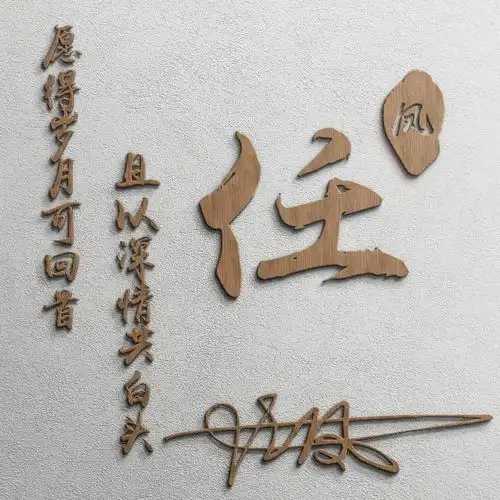 愿得岁月可回首
且以深情共白头
任
凤